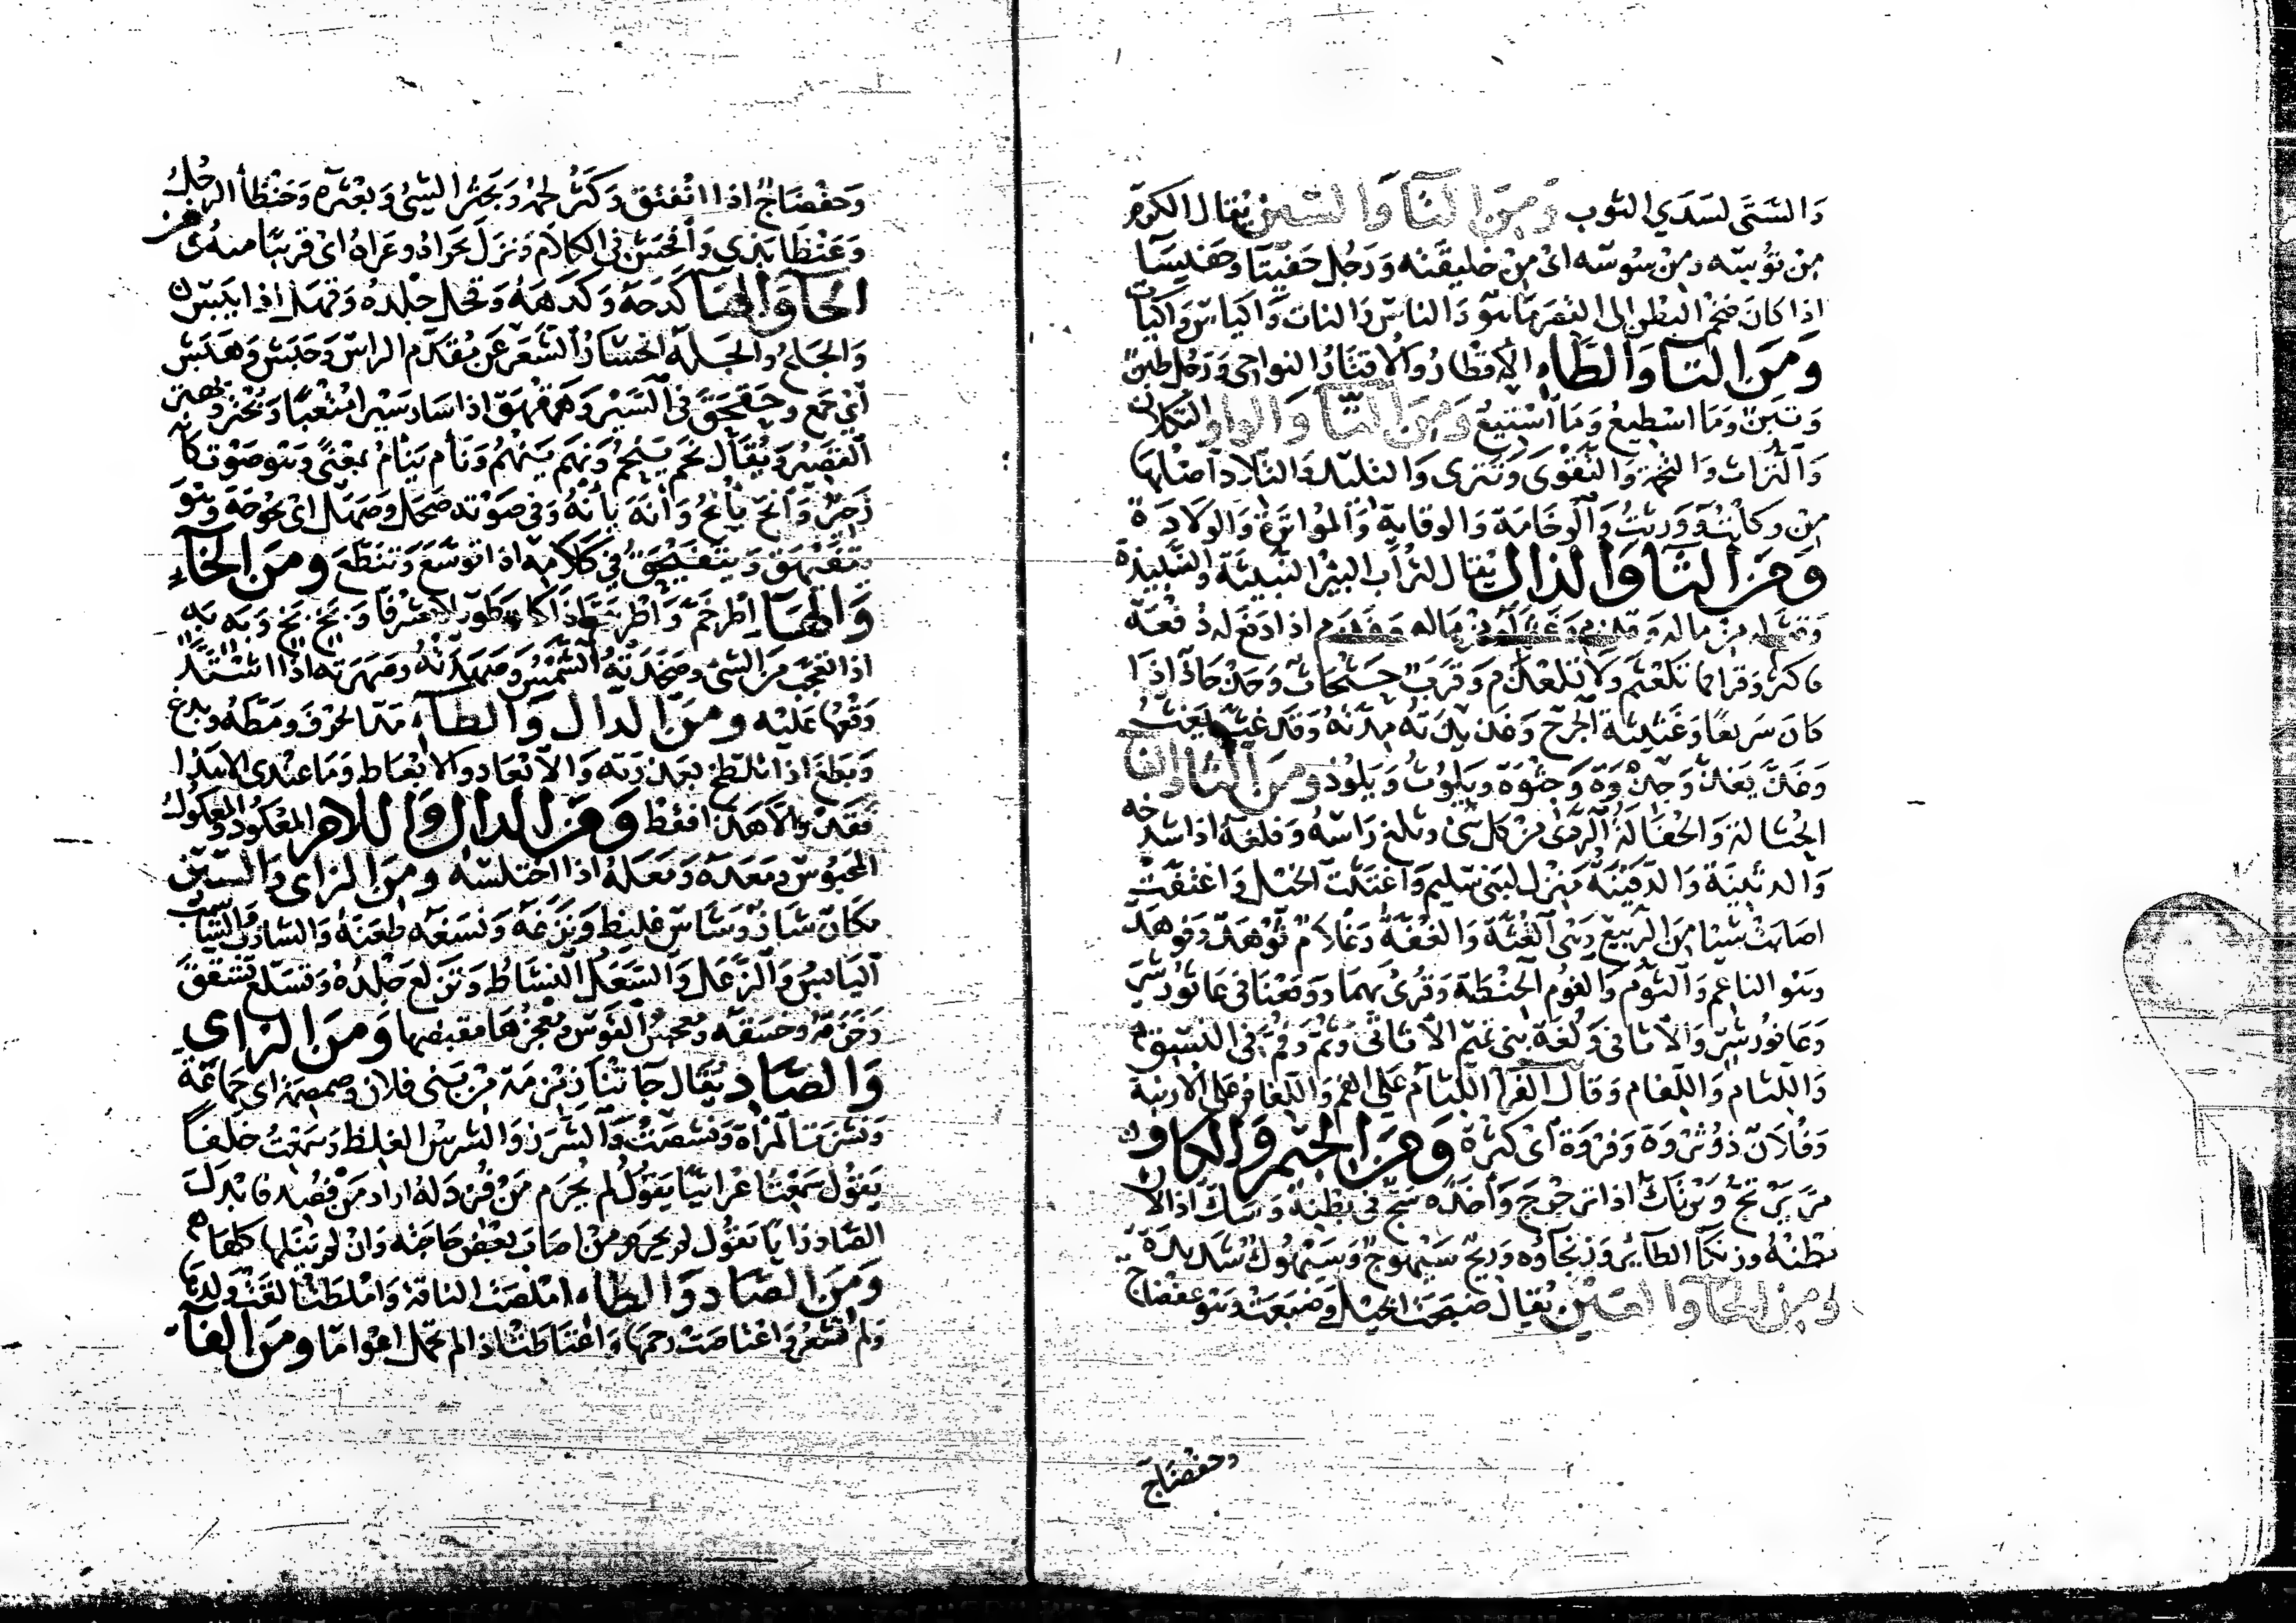 والستى لسدي الثوب ومن التا والسين يقال الكرم
من توسه ومن سوسه اي من خليقته ورجل حفيتا وحفيسا
اذا كان ضخم البطن الى القصر ما هو والناس والنات واكياس واكيات
ومن التا والطاء الاقطار والاقتار النواحي ورجل طبن
وتبن وما اسطيع وما استيع ومن التا والواو التكلان
والتراث والتخمة والتقوى وتترى والتليد والتلاد اصلها
من وكلت وورثت والوخامة والوقاية والمواترة والولادة
ومن الثا والذال يقال لتراب البير النبيثة والنبيذة
وقثم له من ماله وقذم وغثم له من ماله وغذم اذا دفع له دفعة
فاكثر وقرا فما تلعثم ولا تلعذم وقرب حثحاث وحذحاذ اذا
كان سريعا وغثيثة الجرح وغذيذته مدته وقد غث يغث
وغذ يغذ وجذوة وجثوة ويلوث ويلوذ ومن الثا والفا
الجثالة والحفالة الردى من كل شى وثلغ راسه وفلغه اذا شدخه
والدثينة والدفينة منزل لبني سليم واغتثت الخيل واغتفت
اصابت شيا من الربيع وهى الغثة والغفة وغلام ثوهد وفوهد
وهو الناعم والثوم والفوم الحنطة وقرى بهما ووقعنا في عاثور شر
وعافور شر والاثافي ولغة بني تميم الاثاثي وثم وفم في النسق
واللثام واللفام وقال الفرا اللثام على الفم واللفام على الارنبة
وفلان ذو ثروة وفروة اي كثرة ومن الجيم والكاف
مر يرتج ويرتك اذا ترجرج واخذه سج في بطنه وسك اذا لان
بطنه وزمكا الطاير وزمجاوه وريح سيهوج وسيهوك شديدة
ومن الحا والعين يقال ضبحت الخيل وضبعت وهو عفضاج
وحفضاج
وحفضاج اذا انفتق وكثر لحمه وبحثر الشي وبعثره وحنظا الرجل
وعنظا بذى وافحش في الكلام ونزل بحراه وعراه اي قريبا منه ومن
الحا والها كدحه وكدهه وقحل جلده وقهل اذا يبس
والجلح والجله انحسار الشعر عن مقدم الراس وحبش وهبش
اي جمع وحقحق في السير وهقهق اذا سار سيرا متعبا وبحتر وبهتر
القصير ويقال نحم ينحم ونهم ينهم ونام ينام بمعنى وهو صوت كانه
زحير وانح يانح وانه يانه وفي صوته صحل وصهل اي بحوحة وهو
يتفيهق ويتفيحق في كلامه اذا توسع وتنطع ومن الخاء
والها اطرخم واطرهم اذا كان طويلا مشرفا وبخ بخ وبه به
اذا تعجب من الشى وصخدته الشمس وصهدته وصهرته اذا اشتد
وقعها عليه ومن الدال والطاء مد الحرف ومطه وبدغ
وبطغ اذا تلطخ بعذرته والابعاد والابعاط وما عندي الا هذا
فقد والا هذا فقط ومن الدال واللام المعكود والمعكول
المحبوس ومعده ومعله اذا اختلسه ومن الزاى والسين
مكان شاز وشاس غليظ ونزغه ونسغه طعنه والشازب والشاسب
اليابس والزعل والسعل النشاط وتزلع جلده وتسلع تشقق
وخزقه وخسقه ومعجس القوس ومعجزها مقبضها ومن الزاي
والصاد يقال جاتنا زمزمة من بني فلان وصمصمة اي جماعة
ونشزت المراة ونشصت والشرز والشرس الغليظ وسمعت خلفا
يقول سمعت اعرابيا يقول لم يحرم من فزد له اراد من فصد فابدل
الصاد زايا يقول لم يحرم من اصاب بعض حاجته وان لم ينلها كلها
ومن الصاد والطاء املصت الناقة واملطت القت ولدها
ولم تشعر واعتاصت رحمها واعتاطت اذا لم تحمل اعواما ومن الفاء